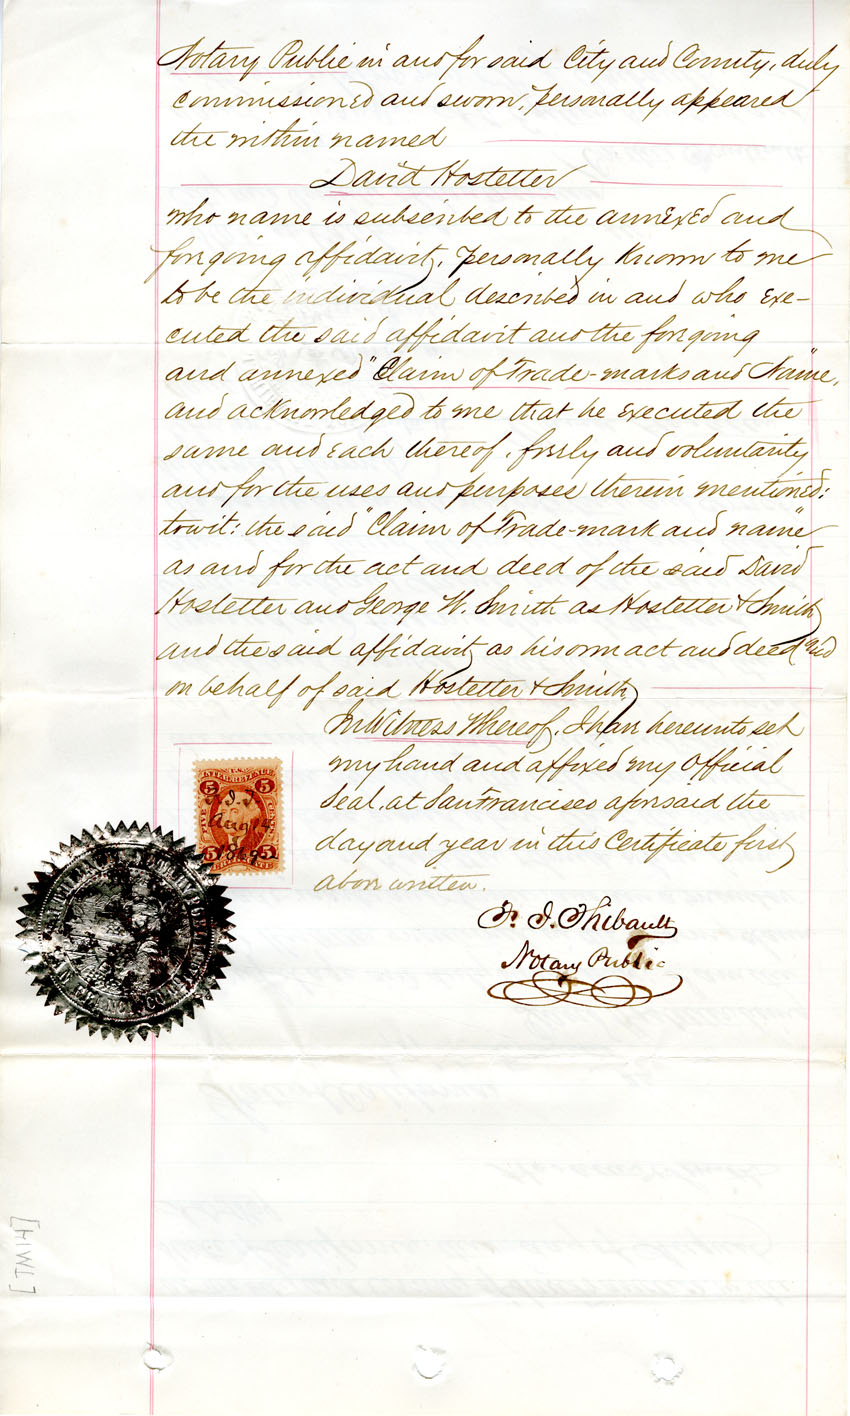 Notary Public in and for said City and County, duly
commissioned and sworn, personally appeared
the within named
David Hostetter
who name is subscribed to the annexed and
forgoing affidavit, personally known to me
to be the individual described in and who exe-
cuted the said affidavit and the forgoing
and annexed "Claim of Trade-marks and Name",
and acknowledged to me that he executed the
same and each thereof, freely and voluntarily
and for the uses and purposes therein mentioned:
to wit: the said "Claim of Trade-mark and name"
as and for the act and deed of the said David
Hostetter and George W. Smith as Hostetter & Smith
and the said affidavit as his own act and deed and
on behalf of said Hostetter & Smith
In Witness Whereof, I have hereunto set
my hand and affixed my Official
Seal, at San Francisco aforesaid the
day and year in this Certificate first
above written.
F. J. Thibault
Notary Public
5 5
INTER. REVENUE
F.J.T.
Aug 14
1869
5 5
[TM14]